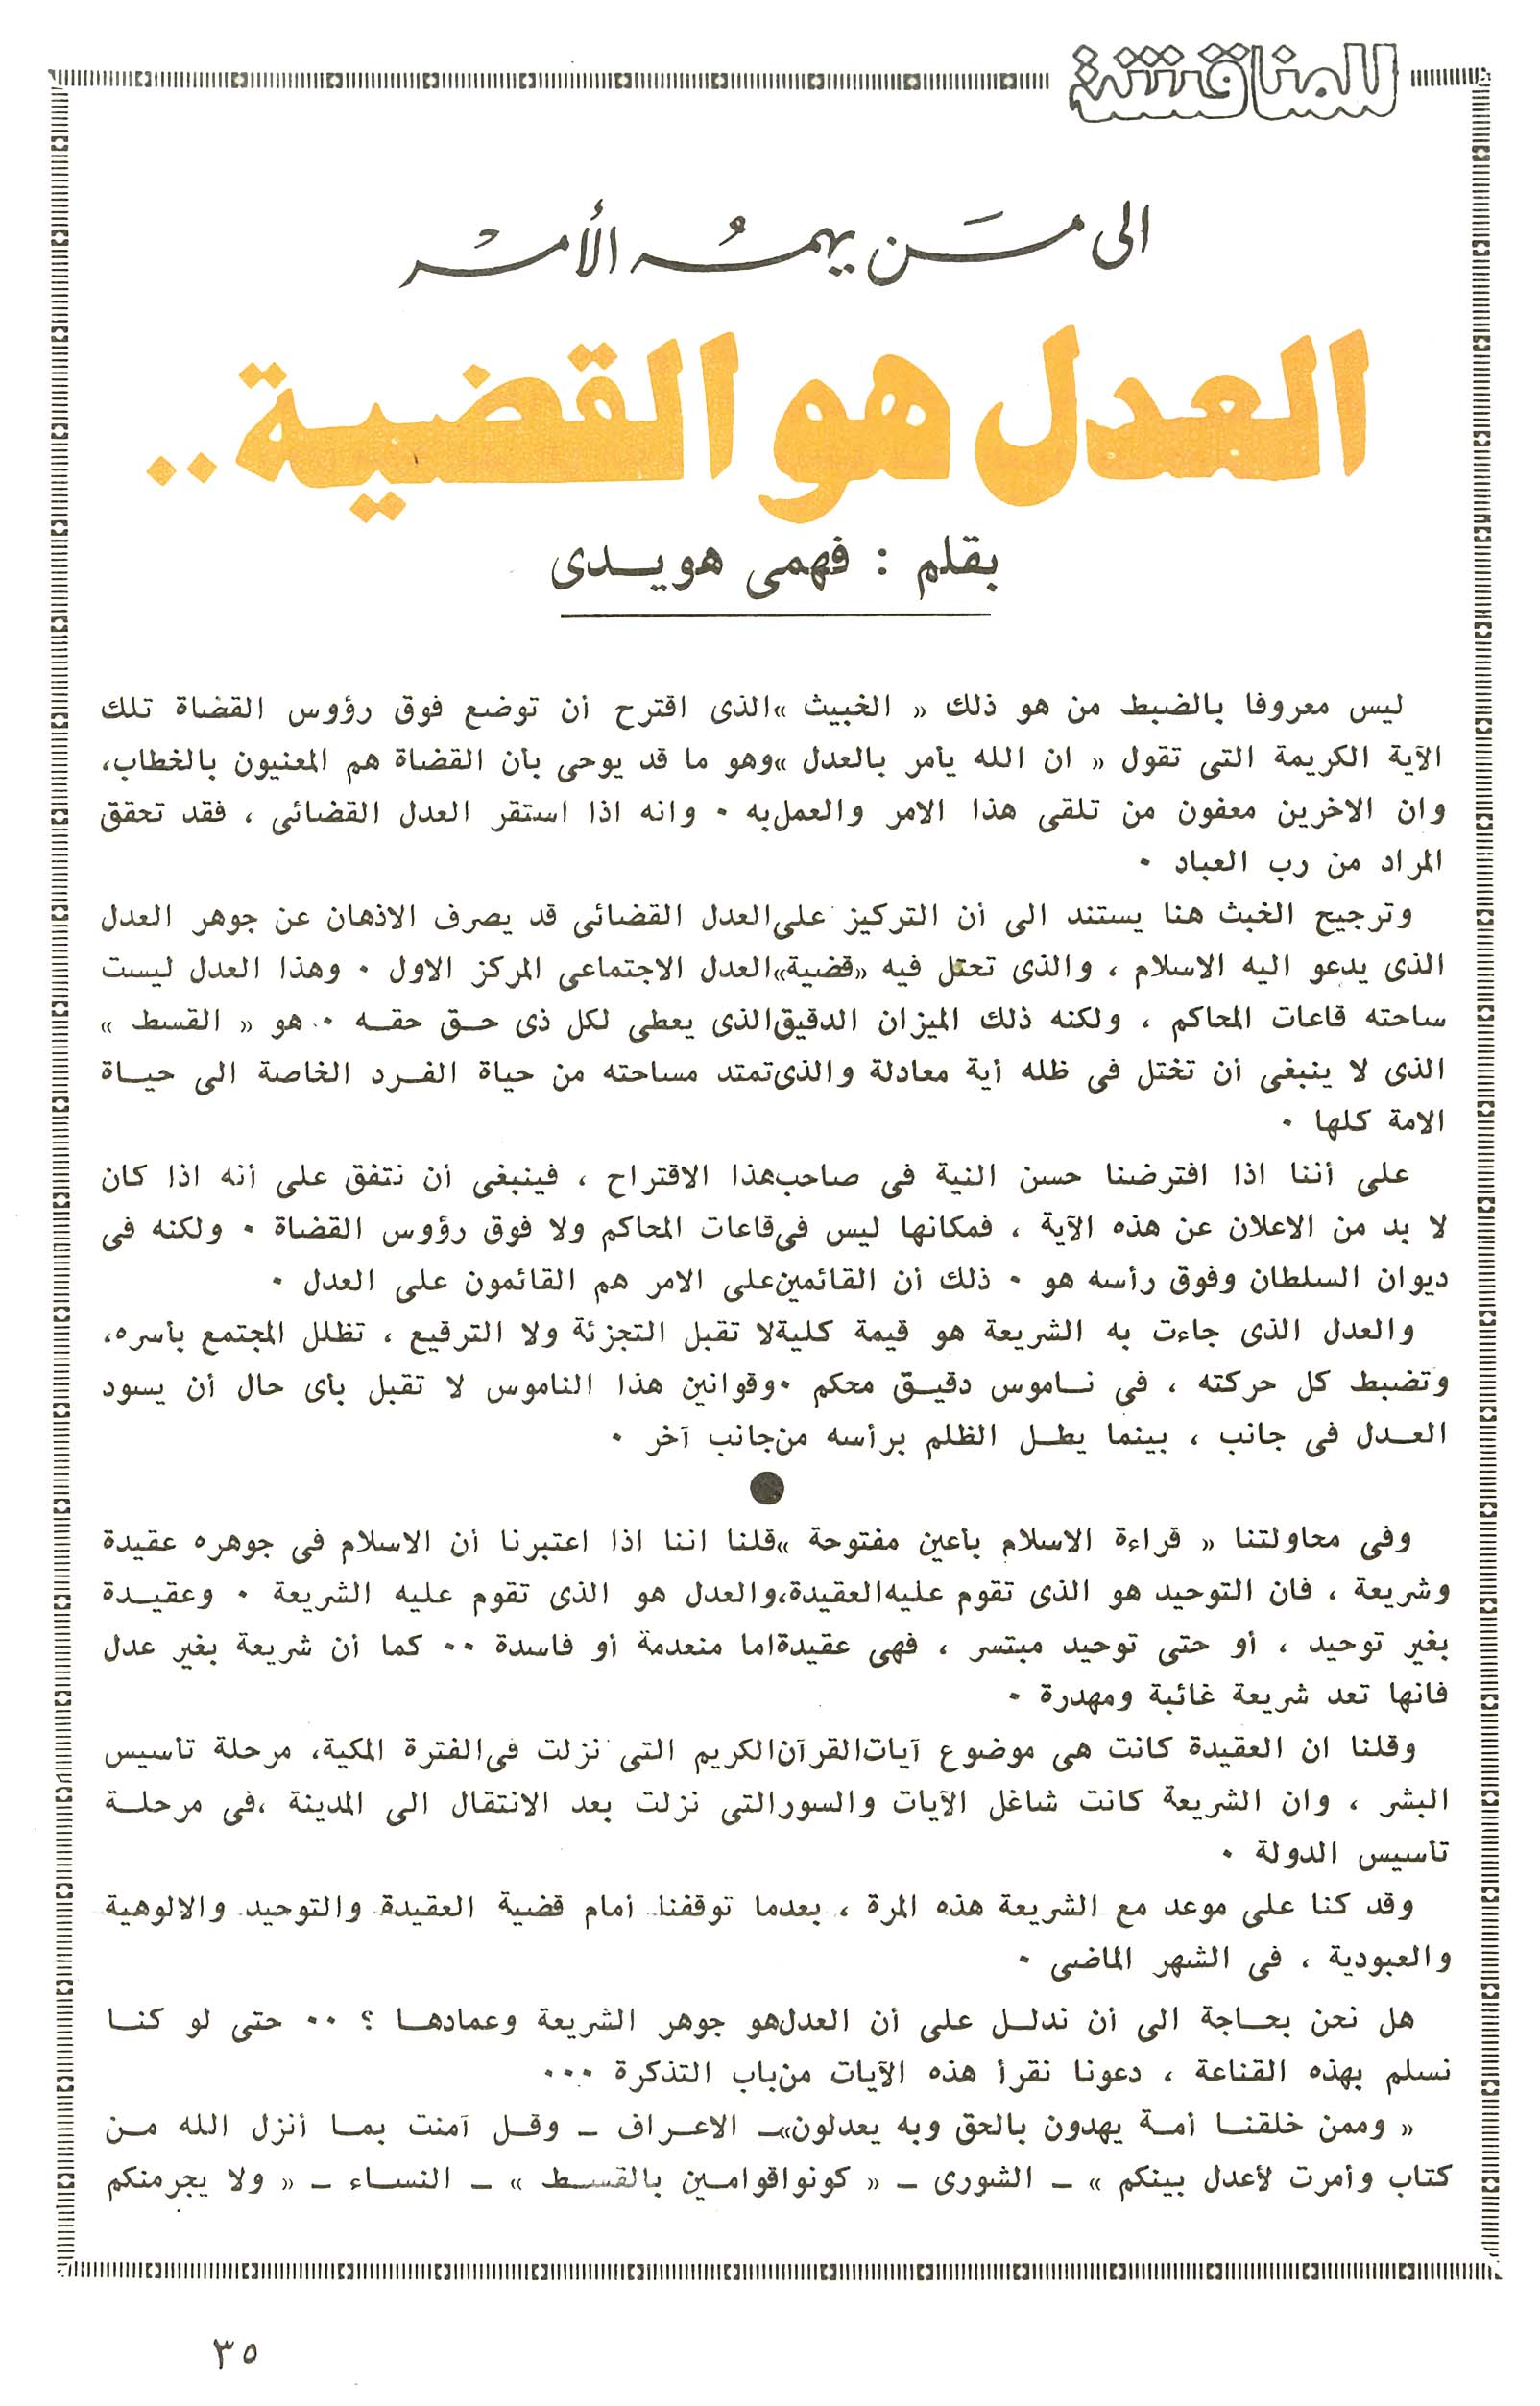 للمناقشة
الى مَن يهمهُ الأمرْ
العدل هو القضية ..
بقلم : فهمى هويــدى
ليس معروفا بالضبط من هو ذلك « الخبيث »الذى اقترح أن توضع فوق رؤوس القضاة تلك
الآية الكريمة التى تقول « ان الله يأمر بالعدل »وهو ما قد يوحى بأن القضاة هم المعنيون بالخطاب،
وان الاخرين معفون من تلقى هذا الامر والعمل به ٠ وانه اذا استقر العدل القضائى ، فقد تحقق
المراد من رب العباد ٠
وترجيح الخبث هنا يستند الى أن التركيز على العدل القضائى قد يصرف الاذهان عن جوهر العدل
الذى يدعو اليه الاسلام ، والذى تحتل فيه «قضية»العدل الاجتماعى المركز الاول ٠ وهذا العدل ليست
ساحته قاعات المحاكم ، ولكنه ذلك الميزان الدقيق الذى يعطى لكل ذى حــق حقــه ٠ هو « القسط »
الذى لا ينبغى أن تختل فى ظله أية معادلة والذى تمتد مساحته من حياة الفــرد الخاصة الى حيــاة
الامة كلها ٠
على أننا اذا افترضنا حسن النية فى صاحب هذا الاقتراح ، فينبغى أن نتفق على أنه اذا كان
لا بد من الاعلان عن هذه الآية ، فمكانها ليس فى قاعات المحاكم ولا فوق رؤوس القضاة ٠ ولكنه فى
ديوان السلطان وفوق رأسه هو ٠ ذلك أن القائمين على الامر هم القائمون على العدل ٠
والعدل الذى جاءت به الشريعة هو قيمة كلية لا تقبل التجزئة ولا الترقيع ، تظلل المجتمع بأسره،
وتضبط كل حركته ، فى نــاموس دقيــق محكم ٠وقوانين هذا الناموس لا تقبل بأى حال أن يسود
العــدل فى جانب ، بينما يطــل الظلم برأسه من جانب آخر ٠
●
وفى محاولتنا « قراءة الاسلام بأعين مفتوحة »قلنا اننا اذا اعتبرنا أن الاسلام فى جوهره عقيدة
وشريعة ، فان التوحيد هو الذى تقوم عليه العقيدة،والعدل هو الذى تقوم عليه الشريعة ٠ وعقيــدة
بغير توحيد ، أو حتى توحيد مبتسر ، فهى عقيدة اما منعدمة أو فاسدة ٠٠ كما أن شريعة بغير عدل
فانها تعد شريعة غائبة ومهدرة ٠
وقلنا ان العقيدة كانت هى موضوع آيات القرآن الكريم التى نزلت فى الفترة المكية، مرحلة تأسيس
البشر ، وان الشريعة كانت شاغل الآيات والسور التى نزلت بعد الانتقال الى المدينة ،فى مرحلــة
تأسيس الدولة ٠
وقد كنا على موعد مع الشريعة هذه المرة ، بعدما توقفنا أمام قضية العقيدة والتوحيد والالوهية
والعبودية ، فى الشهر الماضى ٠
هل نحن بحــاجة الى أن ندلــل على أن العدل هو جوهر الشريعة وعمادهــا ؟ ٠٠ حتى لو كنــا
نسلم بهذه القناعة ، دعونا نقرأ هذه الآيات من باب التذكرة ٠٠٠
« وممن خلقنــا أمــة يهدون بالحق وبه يعدلون»ــ الاعــراف ــ وقــل آمنت بمــا أنزل الله مــن
كتاب وأمرت لأعدل بينكم » ــ الشورى ــ « كونوا قوامــين بالقســط » ــ النســاء ــ « ولا يجرمنكم
٣٥